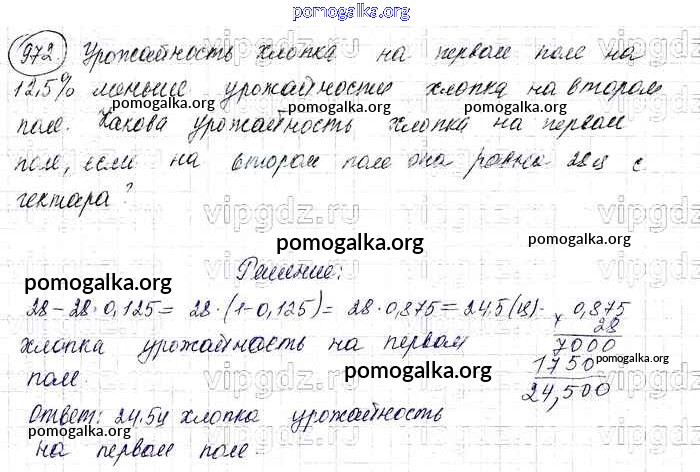 pomogalka.org
972. Урожайность хлопка на первом поле на
12,5% меньше урожайности хлопка на втором
pomogalka.org pomogalka.org
поле. Какова урожайность хлопка на первом
поле, если на втором поле она равна 28 ц с
гектара?
vipgdz.ru vipgdz.ru vipgdz.ru
pomogalka.org pomogalka.org
Решение:
pomogalka.org
28-28·0,125= 28·(1-0,125)= 28·0,875=24,5(ц)-
хлопка урожайность на первом
поле.
pomogalka.org
× 0,875
28
7000
1750
24,500
pomogalka.org
Ответ: 24,5ц хлопка урожайность
pomogalka.org pomogalka.org
на первом поле